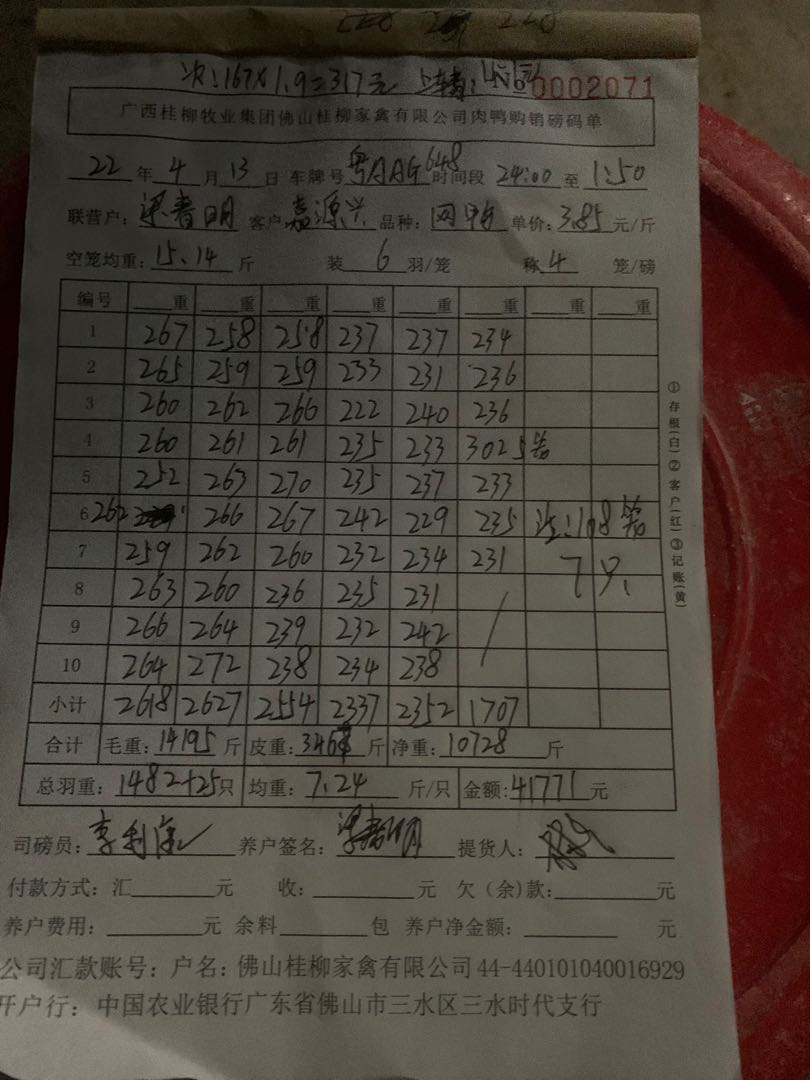 次:167×1.9=317元 上车费: 0002071
广西桂柳牧业集团佛山桂柳家禽有限公司肉鸭购销磅码单
22年4月13日 车牌号粤AAG648时间段24:00至1:50
联营户: 客户嘉源兴 品种: 单价:3.85元/斤
空笼均重:15.14斤 装6羽/笼 称4笼/磅
编号 重 重 重 重 重 重 重 重
1 267 258 258 237 237 234
2 265 259 259 233 231 236
3 260 262 266 222 240 236
4 260 261 261 235 233 3025
5 252 263 270 235 237 233
6 262 266 267 242 229 235
7 259 262 260 232 234 231 7只
8 263 260 236 235 231
9 266 264 239 232 242
10 264 272 238 234 238
小计 2618 2627 2554 2337 2352 1707
合计 毛重:14195斤 皮重: 斤 净重:10728斤
总羽重:1482+25只 均重:7.24斤/只 金额:41771元
司磅员: 养户签名: 提货人:
付款方式:汇 元 收: 元 欠(余)款: 元
养户费用: 元 余料 包 养户净金额: 元
公司汇款账号:户名:佛山桂柳家禽有限公司44-440101040016929
开户行:中国农业银行广东省佛山市三水区三水时代支行
①存根(白)②客户(红)③记账(黄)